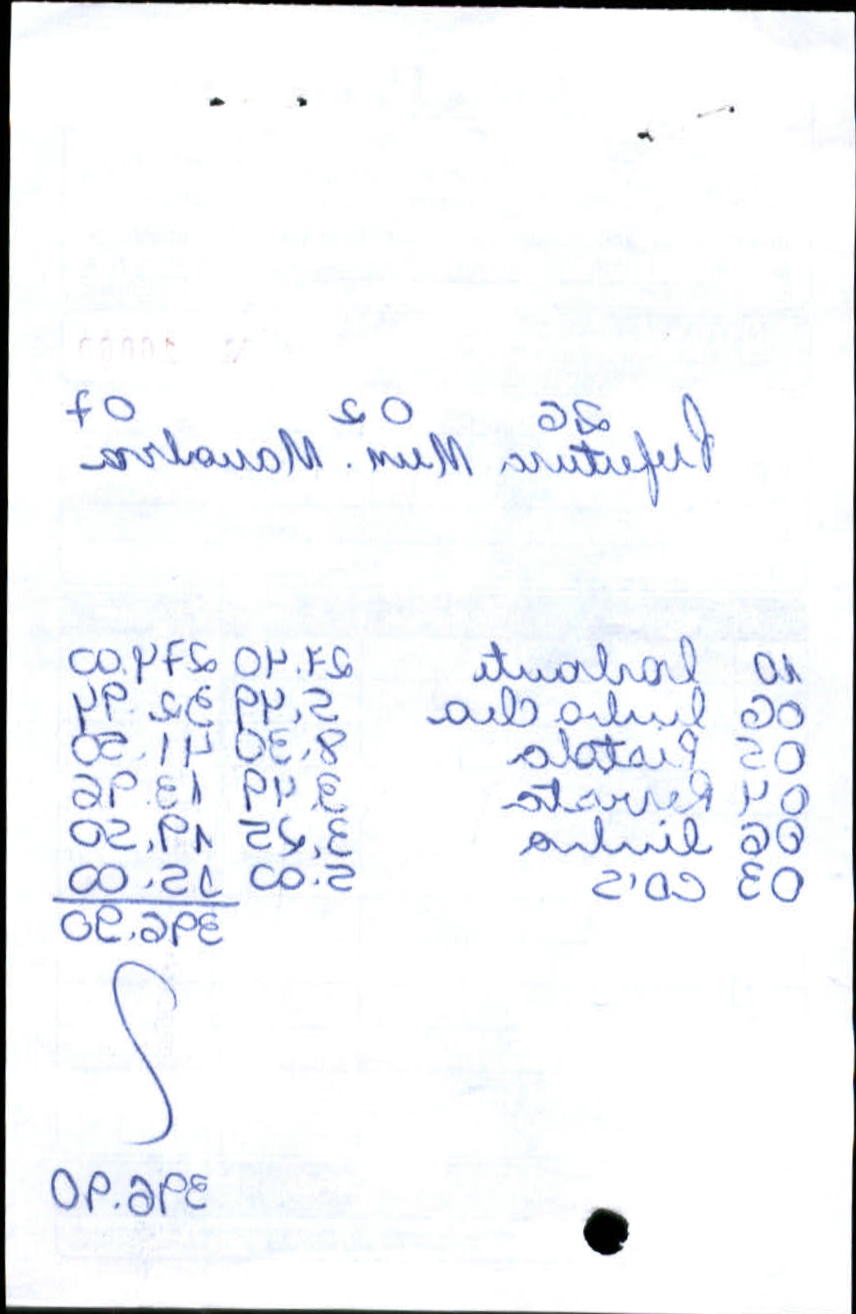 26 02 07
Prefeitura Mun. Marialva
10 barbante 27.40 274.00
06 linha Clea 5,49 32,94
05 Pistola 8.30 41.50
04 Revista 3,49 13.96
06 linha 3,25 19,50
03 CD'S 5.00 15.00
396.90
396.90